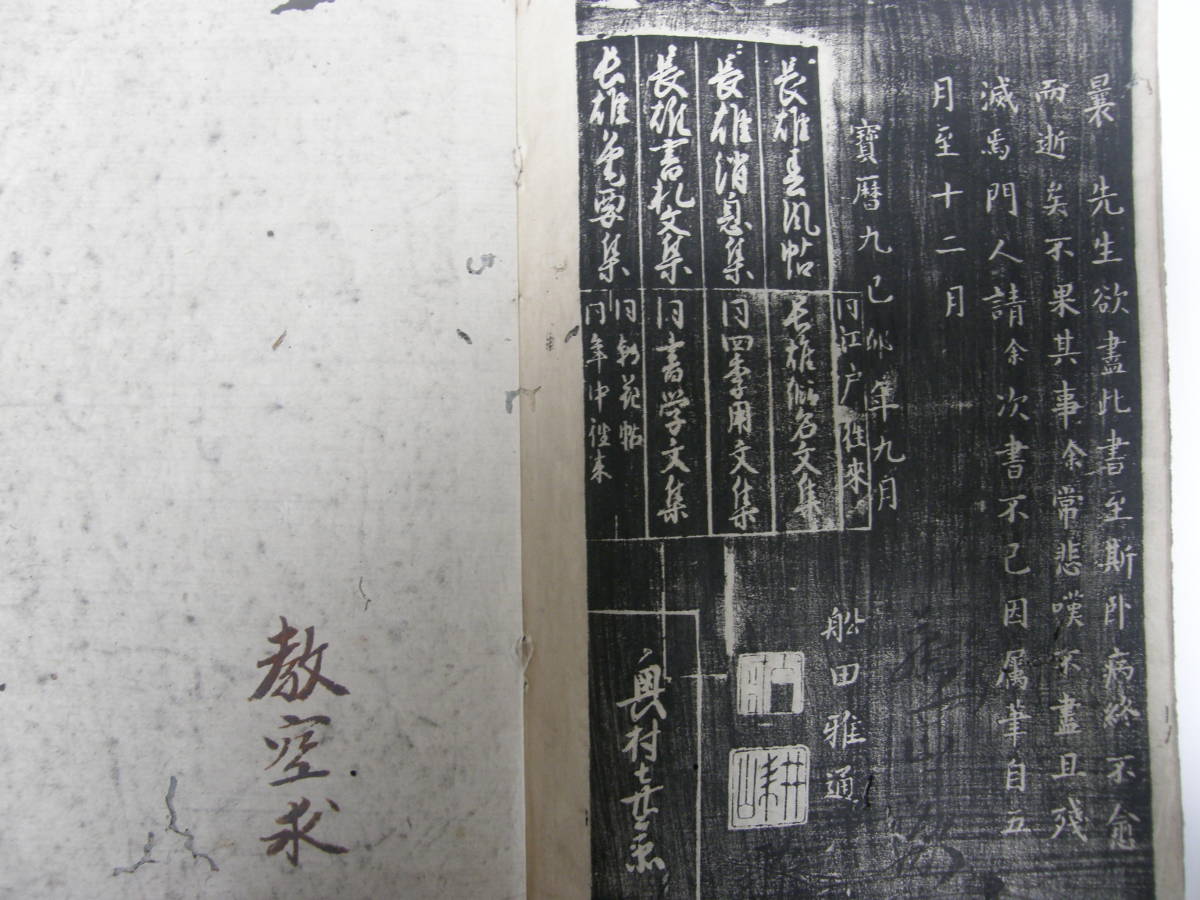 曩 先生欲盡此書至斯卧病終不愈
而逝矣不果其事余常悲嘆不盡且殘
滅焉門人請余次書不已因属筆自五
月至十二月
寶暦九己卯年九月
船田雅通
同江戸往来
長雄春風帖
長雄仮名文集
長雄消息集
同四季用文集
長雄書札文集
同書学文集
長雄要集
同朝花帖
同年中往来
奥村喜兵衛
教空求